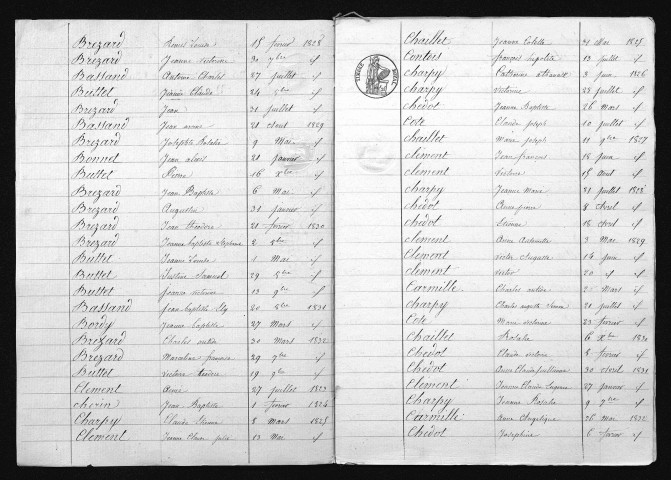 Brezard Louise 15 février 1828
Brezard Jeanne Victorine 30 7bre d
Bassand Antoine Charles 27 juillet d
Buttet Jeanne Claude 24 8bre d
Brezard Jean 31 juillet d
Bassand Jean 21 aout 1829
Brezard Josephte Rosalie 9 Mai d
Bonnet Jean 21 janvier d
Buttet Pierre 16 Xbre d
Brezard Jean Baptiste 6 Mai d
Brezard Augustin 31 janvier d
Brezard Jean Théodore 21 février 1830
Brezard Jeanne baptiste 2 8bre d
Buttet Jeanne Louise 1 Mai d
Buttet Justine 29 8bre d
Buttet Jeanne Victorine 13 9bre d
Bassand Jean baptiste Ely 20 8bre 1831
Bordy Jeanne baptiste 27 Mars d
Brezard Charles 30 Mars 1832
Brezard 29 7bre d
Buttet Victoire 19 9bre d
Clement Aimé 27 juillet 1823
chopin Jean Baptiste 1 février 1824
Charpy Claude Etienne 8 Mars 1825
Clément Jeanne Claire julie 13 Mai d
Chaillet Jeanne Colette 31 Mai 1825
Contois françois hypolite 13 juillet d
TIMBRE ROYAL
charpy Catherine 3 juin 1826
charpy Victorine 28 juillet d
chedot Jeanne Baptiste 26 Mars d
Cote Claude joseph 10 juillet d
chaillet Marie joseph 11 9bre 1827
clément Jean françois 18 juin d
clement Victoire 15 aout d
charpy Jeanne Marie 31 juillet 1828
chedot Anne pierre 8 avril d
chedot Etienne 18 avril d
clement Anne Antoinette 3 Mai 1829
Clement Victor Auguste 16 juin d
clement Victor 20 d d
Carmille Charles 25 Mars d
Charpy Charles auguste 21 juillet d
Cote Marie victorine 23 février d
Chaillet Rosalie 6 Xbre 1830
Chedot Claude victoire 8 février d
Chedot Anne Claude guillemine 30 avril 1831
Clement Jeanne Claude Eugenie 27 janvier d
Charpy Jeanne Rosalie 9 7bre d
Carmille Anne Angelique 26 mai 1832
Chedot Josephine 6 février d